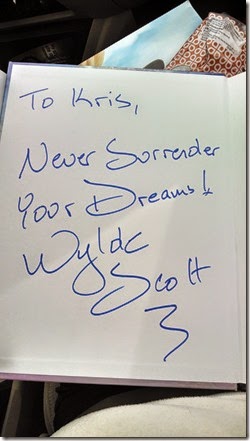 To Kris,
Never Surrender
Your Dreams!
Wylde
Scott